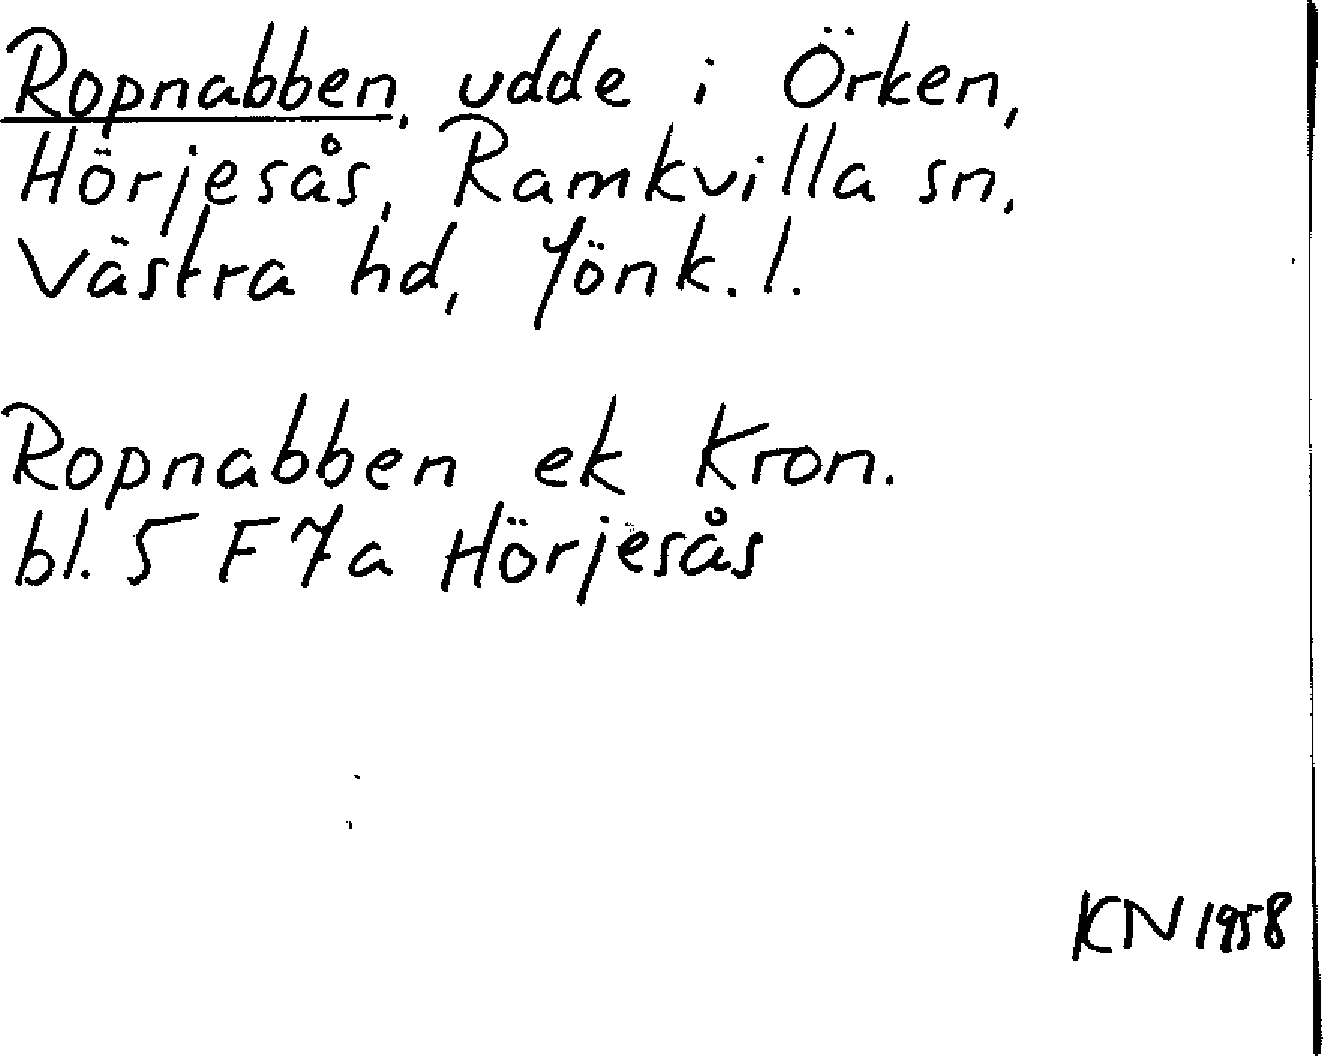 Ropnabben, udde i Örken,
Hörjesås, Ramkvilla sn,
Västra hd, Jönk. l.
Ropnabben ek Kron.
bl. 5 F 7a Hörjesås
KN 1958